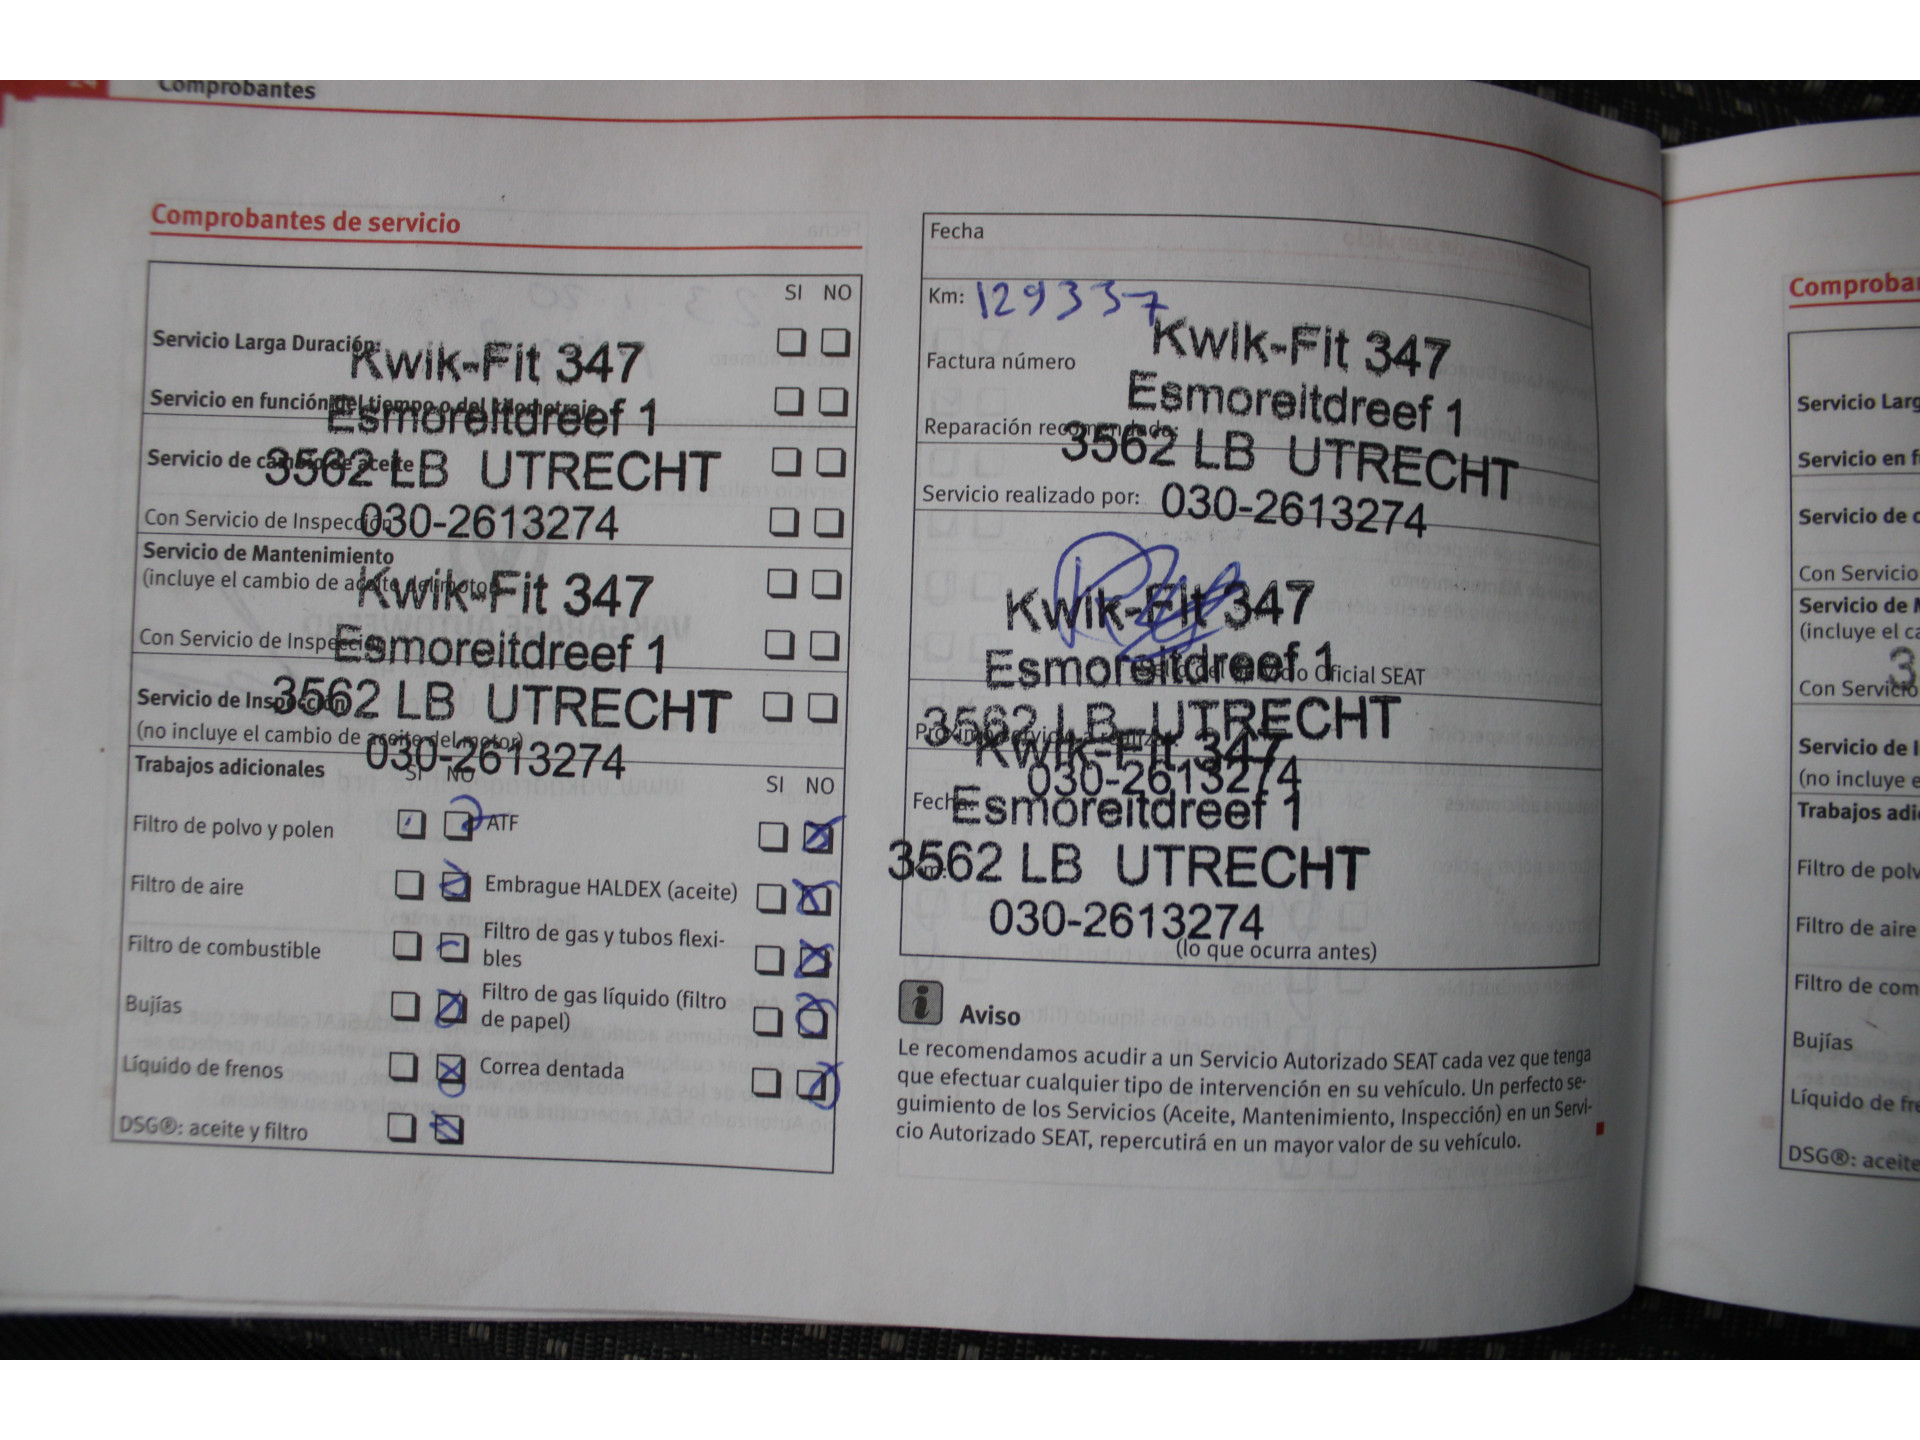 Comprobantes
Comprobantes de servicio
SI NO
Servicio Larga Duración:
Kwik-Fit 347
Servicio en función del tiempo o del kilometraje
Esmoreitdreef 1
Servicio de cambio de aceite
3562 LB UTRECHT
Con Servicio de Inspección
030-2613274
Servicio de Mantenimiento
(incluye el cambio de aceite del motor)
Kwik-Fit 347
Con Servicio de Inspección
Esmoreitdreef 1
Servicio de Inspección
3562 LB UTRECHT
(no incluye el cambio de aceite del motor)
030-2613274
Trabajos adicionales
SI NO
SI NO
Filtro de polvo y polen
ATF
Filtro de aire
Embrague HALDEX (aceite)
Filtro de combustible
Filtro de gas y tubos flexi-
bles
Bujías
Filtro de gas líquido (filtro
de papel)
Líquido de frenos
Correa dentada
DSG®: aceite y filtro
Fecha
Km: 129337
Kwik-Fit 347
Factura número
Esmoreitdreef 1
Reparación recomendada:
3562 LB UTRECHT
Servicio realizado por:
030-2613274
Kwik-Fit 347
Esmoreitdreef 1
Oficial SEAT
3562 LB UTRECHT
Kwik-Fit 347
030-2613274
Fecha:
Esmoreitdreef 1
3562 LB UTRECHT
030-2613274
(lo que ocurra antes)
i Aviso
Le recomendamos acudir a un Servicio Autorizado SEAT cada vez que tenga
que efectuar cualquier tipo de intervención en su vehículo. Un perfecto se-
guimiento de los Servicios (Aceite, Mantenimiento, Inspección) en un Servi-
cio Autorizado SEAT, repercutirá en un mayor valor de su vehículo.
Comproba
Servicio Larg
Servicio en f
Servicio de c
Con Servicio
Servicio de M
(incluye el ca
3
Con Servicio
Servicio de I
(no incluye e
Trabajos adi
Filtro de polv
Filtro de aire
Filtro de com
Bujías
Líquido de fre
DSG®: aceite